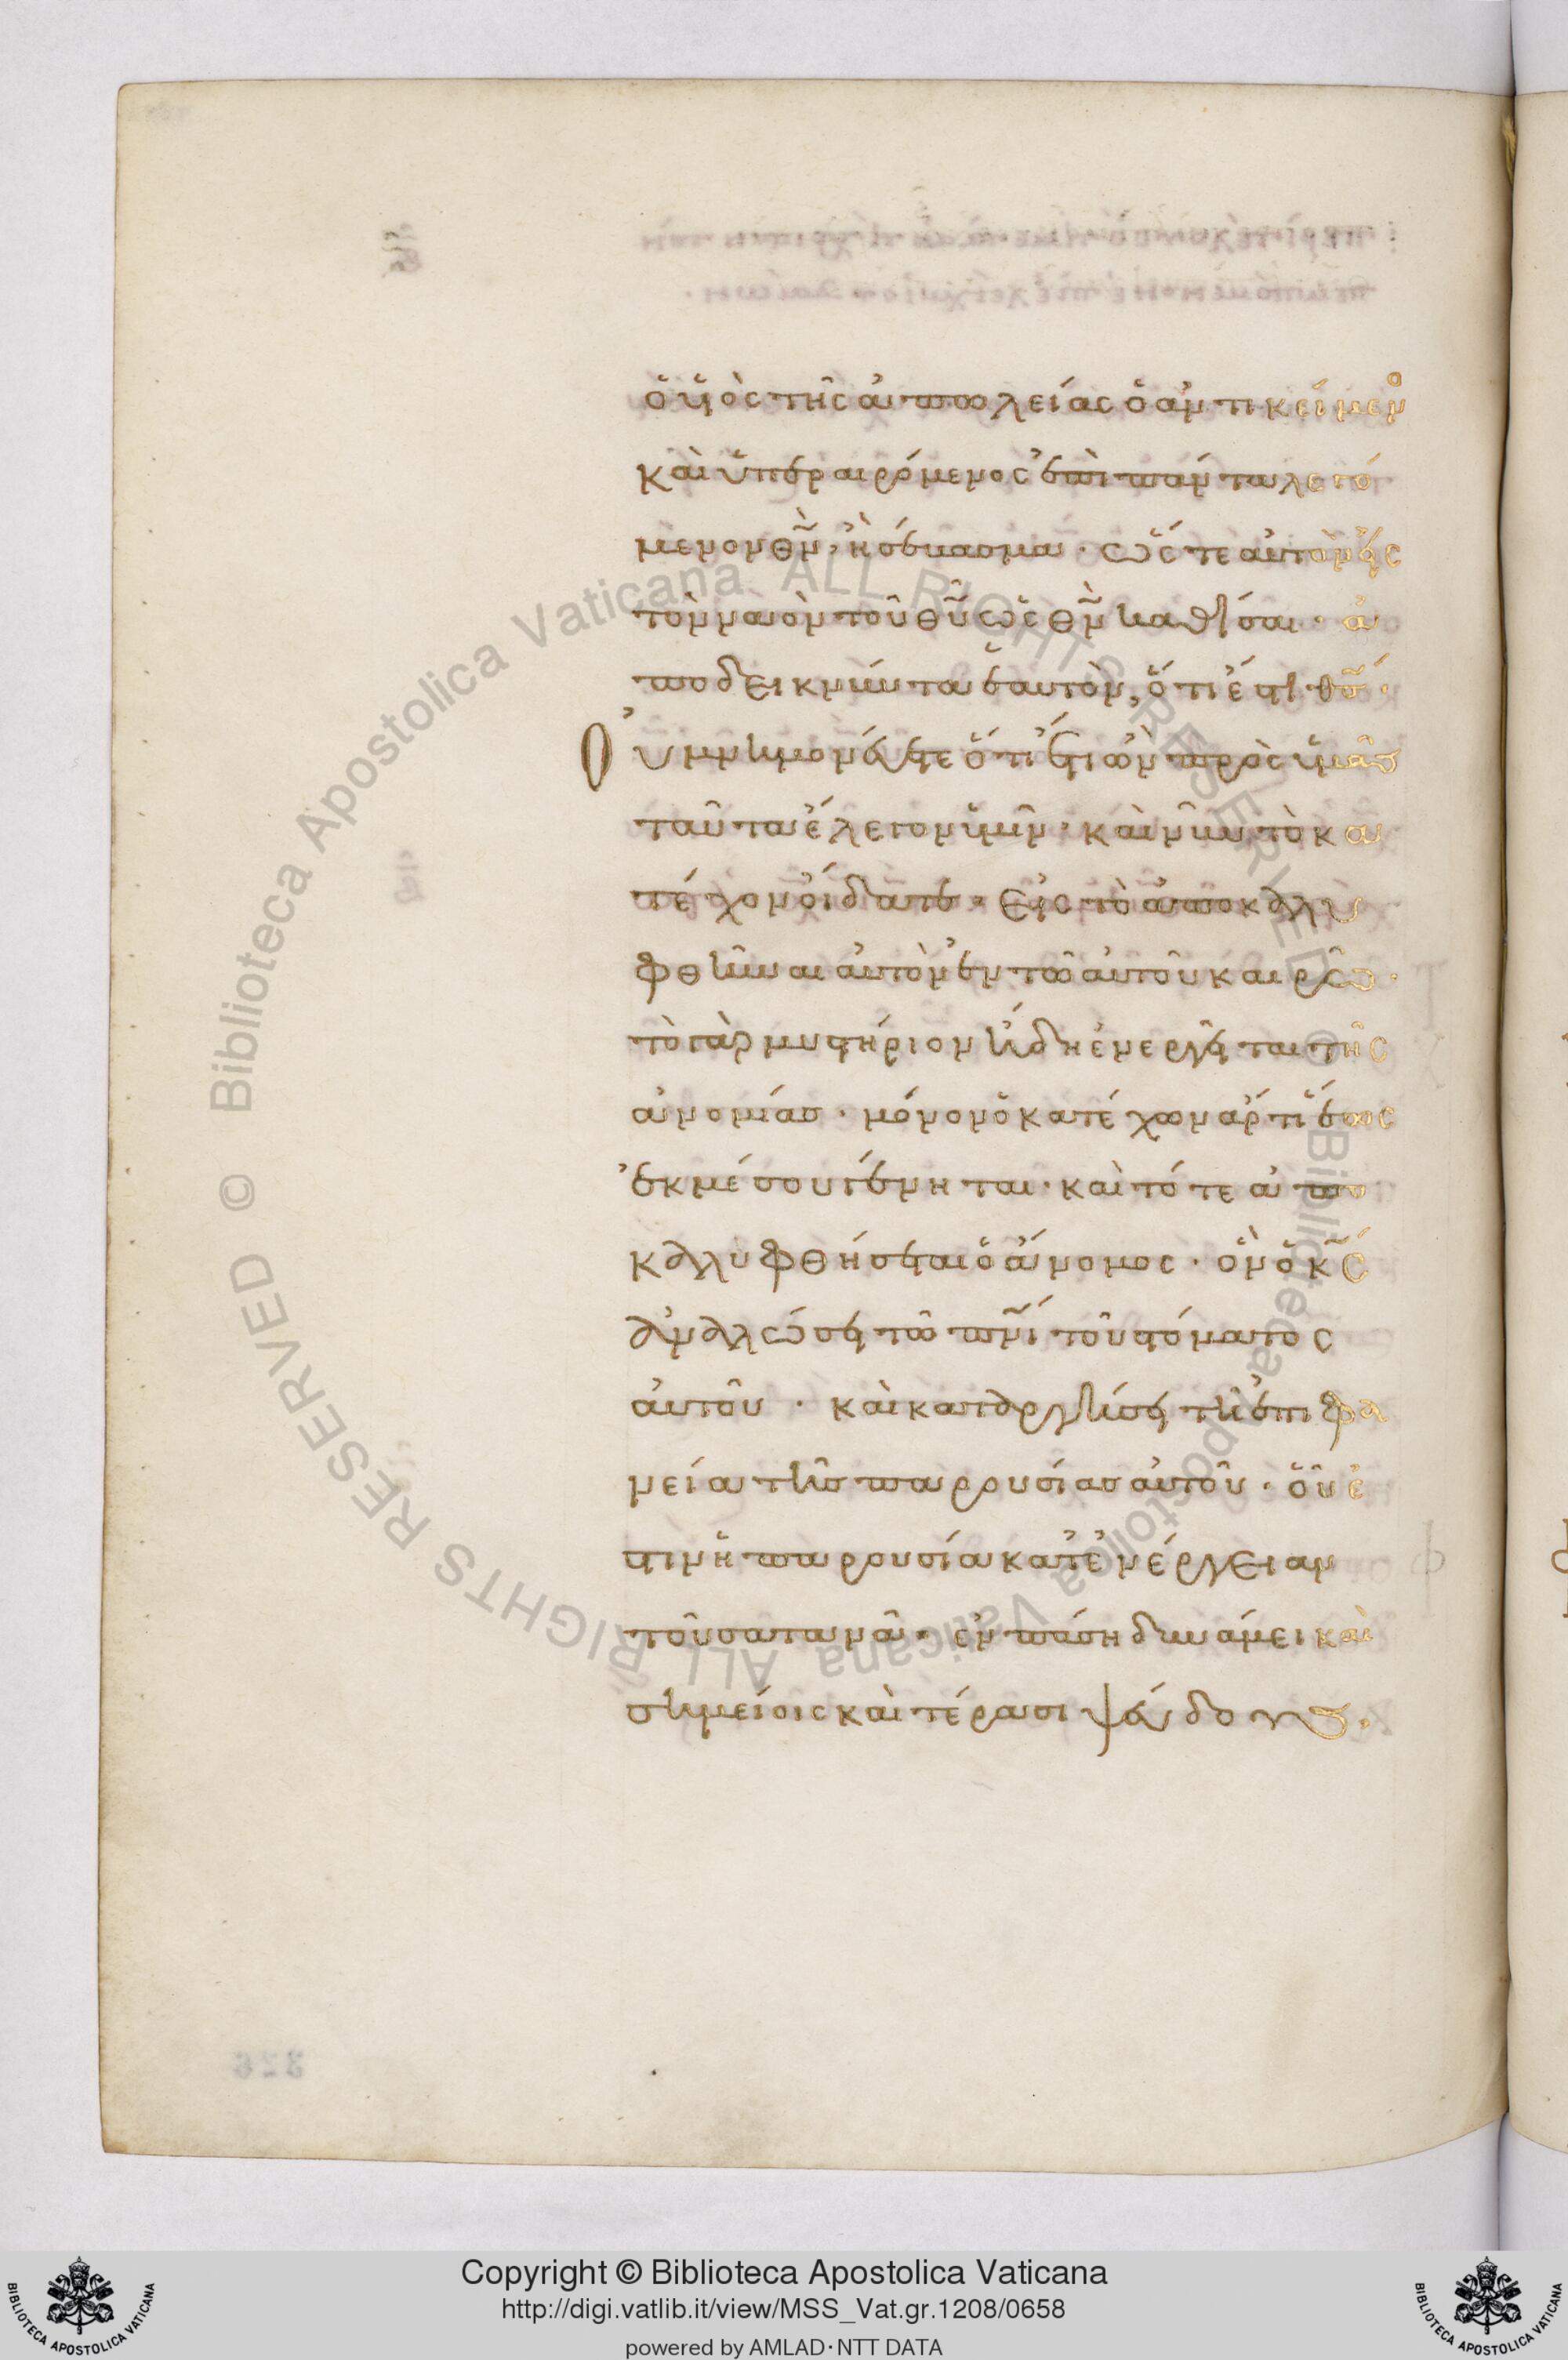 ὁ υἱὸς τῆς ἀπωλείας ὁ ἀντικείμεν
καὶ ὑπεραιρόμενος ἐπὶ πάντα λεγό
μενον θν, ἢ σέβασμα · ὥς τε αὐτὸν εἰς
τὸν ναὸν τοῦ θυ ὡς θν καθίσαι · ἀ
ποδεικνύντα ἑαυτὸν, ὅτι ἔστι θσ ·
Οὐ μνημονεύετε ὅτι ἔτι ὢν πρὸς ὑμᾶς
ταῦτα ἔλεγον ὑμῖν · καὶ νῦν τὸ κα
τέχον οἴδατε · εἰς τὸ ἀποκαλυ
φθῆναι αὐτὸν ἐν τῶ αὐτοῦ καιρῶ ·
τὸ γὰρ μυστήριον ἤδη ἐνεργεῖται τῆς
ἀνομίας · μόνον ὁ κατέχων ἄρτι ἕως
ἐκ μέσου γένηται · καὶ τότε ἀπο
καλυφθήσεται ὁ ἄνομος · ὃν ὁ κς
ἀναλώσει τῶ πνι τοῦ στόματος
αὐτοῦ · καὶ καταργήσει τῆ ἐπιφα
νεία τῆς παρουσίας αὐτοῦ · οὗ ἐ
στιν ἡ παρουσία κατ' ἐνέργειαν
τοῦ σατανᾶ · ἐν πάση δυνάμει καὶ
σημείοις καὶ τέρασι ψεύδους ·
326
Biblioteca Apostolica Vaticana ALL RIGHTS RESERVED ©
Biblioteca Apostolica Vaticana ALL RIGHTS RESERVED ©
Copyright © Biblioteca Apostolica Vaticana
http://digi.vatlib.it/view/MSS_Vat.gr.1208/0658
powered by AMLAD·NTT DATA
BIBLIOTECA APOSTOLICA VATICANA
BIBLIOTECA APOSTOLICA VATICANA